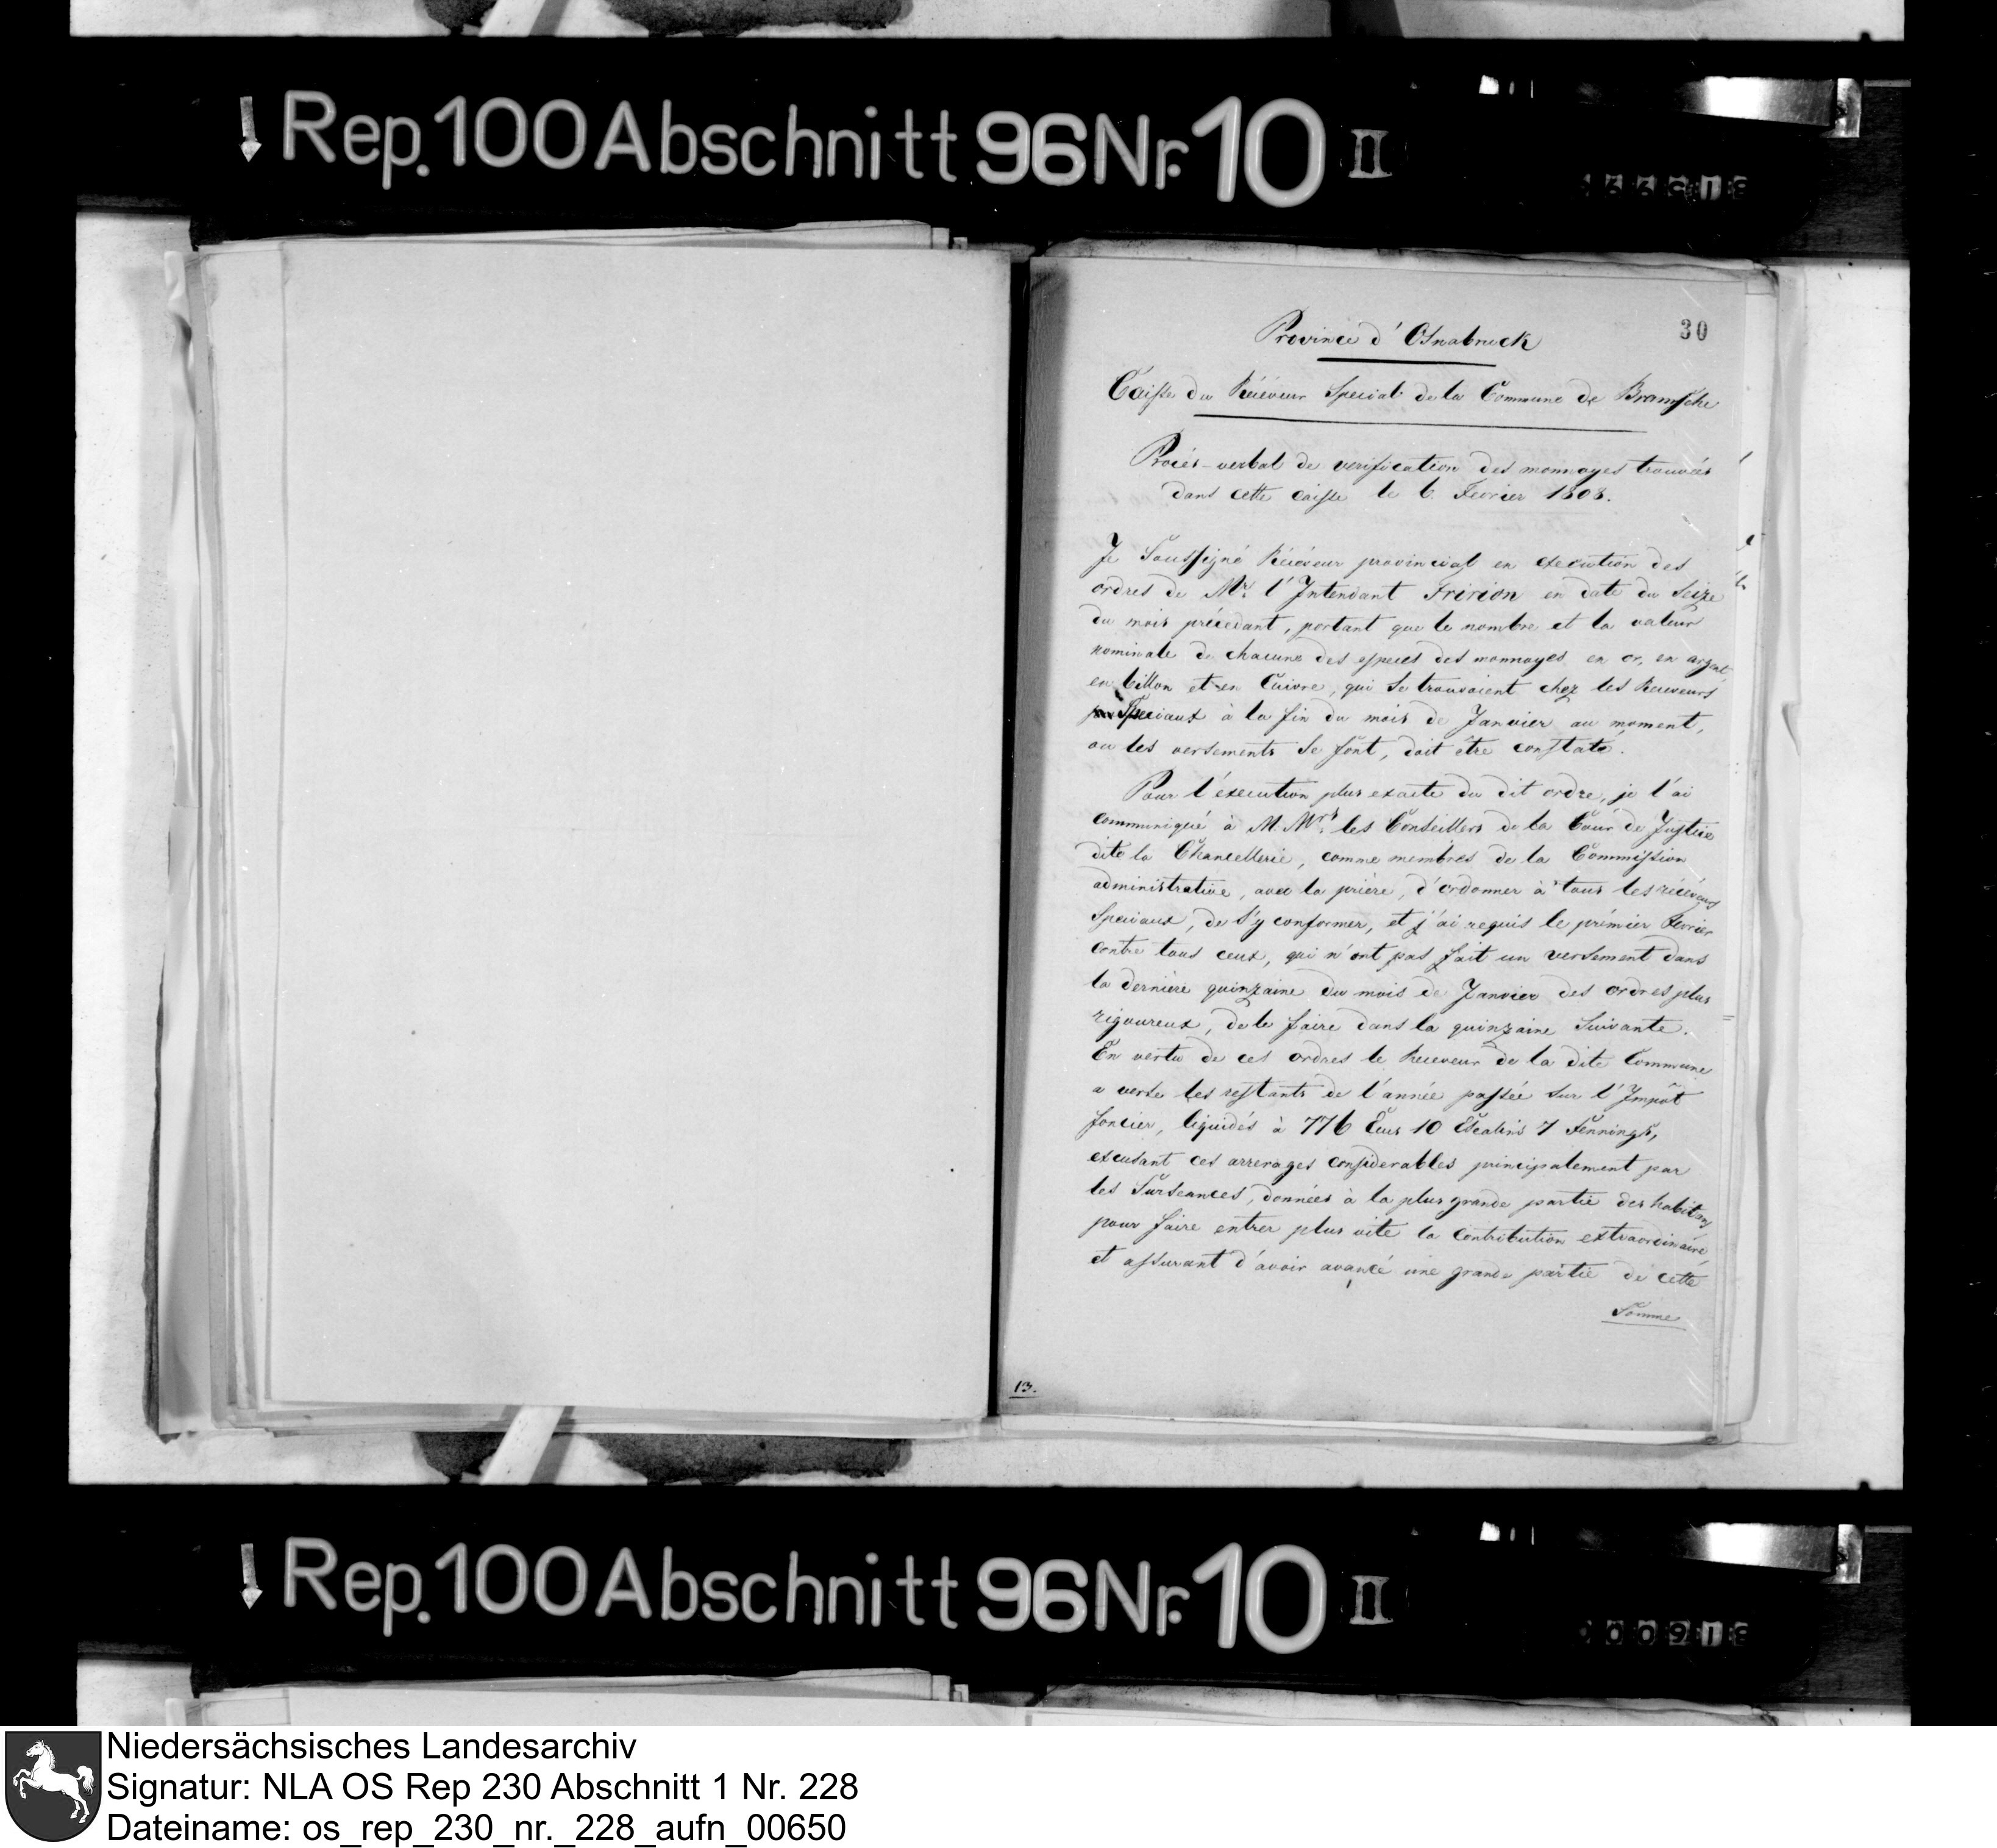 Rep. 100 Abschnitt 96 Nr. 10 II
30
Province d'Osnabruck
Caisse du Réceveur Special de la Commune de Bramsche
Procés-verbal de verification des monnoyes trouvées
dans cette caisse le 6 Fevrier 1808.
Je Soussigné Réceveur provincial en execution des
ordres de Mr. l'Intendant Fririon en date du Seize
du mois précedant, portant que le nombre et la valeur
nominale de chacune des especes des monnoyes en or, en argent
en billon et en Cuivre, qui se trouvoient chez les Receveurs
Speciaux à la fin du mois de Janvier au moment,
ou les versements se font, doit être constaté.
Pour l'éxecution plus exacte du dit ordre, je l'ai
communiqué à M. Mrs. les Conseillers de la Cour de Justice
dite la Chancellerie, comme membres de la Commission
administrative, avec la prière, d'ordonner à tous les réceveurs
Speciaux, de s'y conformer, et j'ai requis le prémier Fevrier
contre tous ceux, qui n'ont pas fait un versement dans
la derniere quinzaine du mois de Janvier des ordres plus
rigoureux, de le faire dans la quinzaine Suivante.
En vertu de ces ordres le Receveur de la dite Commune
a verse les restants de l'année passée sur l'Impôt
foncier, liquidés à 776 Ecus 10 Escalins 7 Fennings,
excusant ces arrerages considerables principalement par
les Surseances, données à la plus grande partie des habitans
pour faire entrer plus vite la Contribution extraordinaire
et assurant d'avoir avancé une grande partie de cette
Somme
13.
Rep. 100 Abschnitt 96 Nr. 10 II
Niedersächsisches Landesarchiv
Signatur: NLA OS Rep 230 Abschnitt 1 Nr. 228
Dateiname: os_rep_230_nr._228_aufn_00650